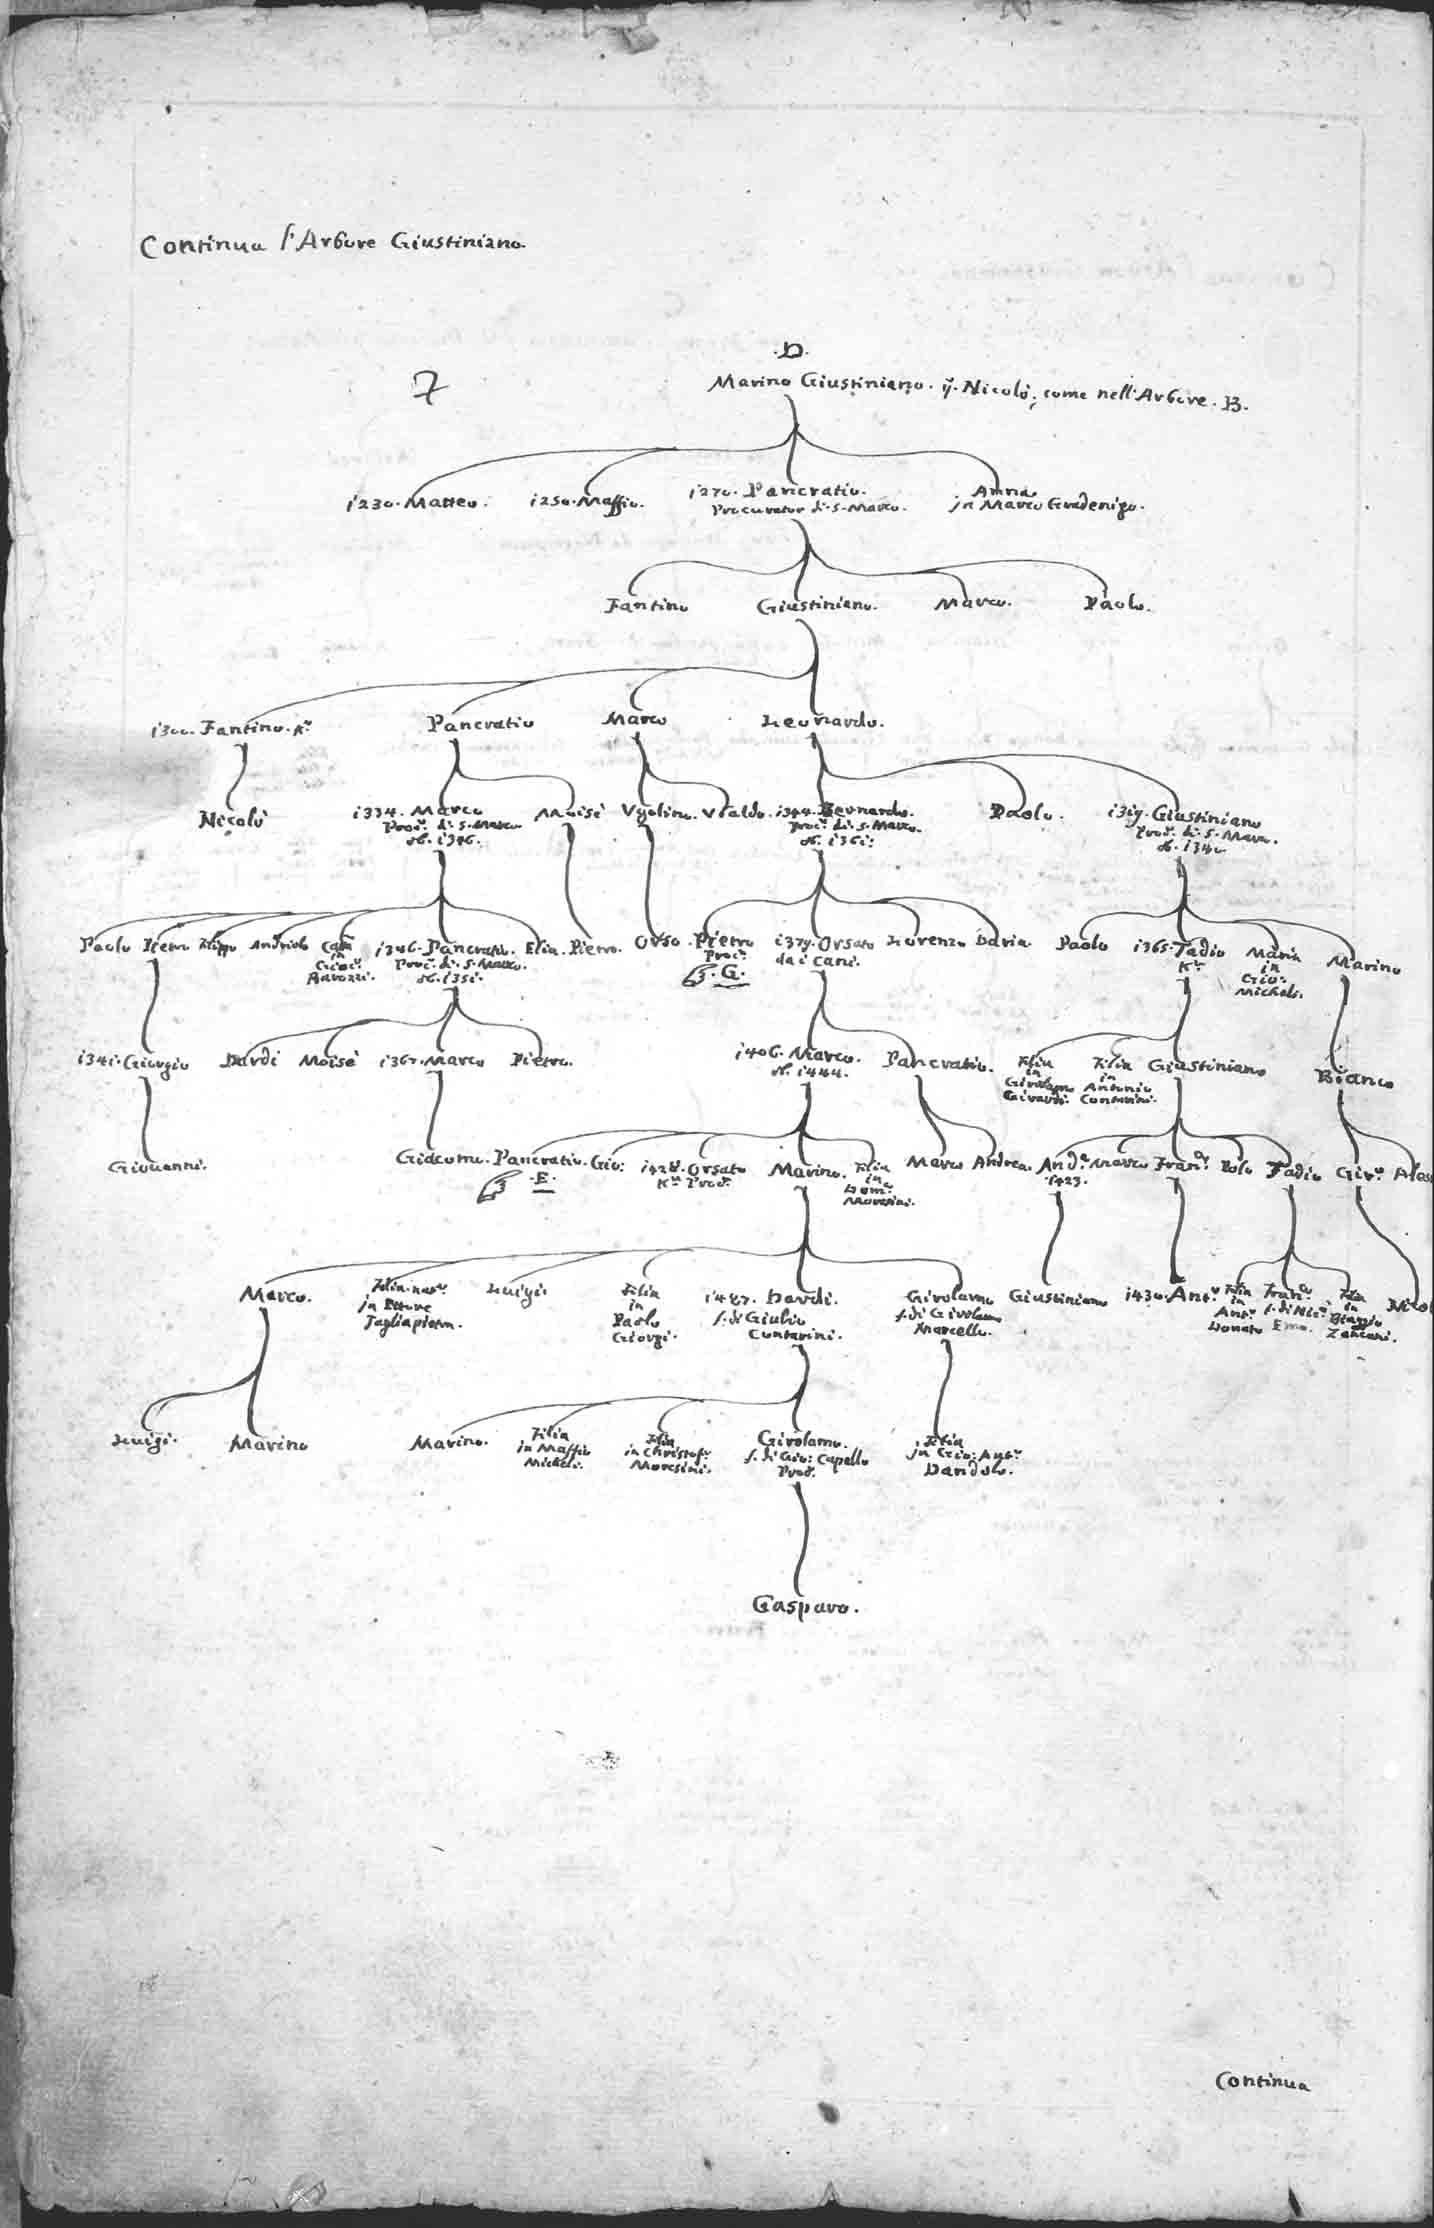 Continua l'Arbore Giustiniano.
.D.
7
Marino Giustiniano. q. Nicolò, come nell'Arbore. B.
1230. Matteo. 1250. Maffio. 1270. Pancratio. Anna
Procurator di S. Marco. in Marco Gradenigo.
Fantino Giustiniano. Marco. Paolo.
1300. Fantino. Kr. Pancratio Marco Leonardo.
Nicolò 1334. Marco Moisè Vgolino. Vbaldo. 1344. Bernardo. Paolo. 1319. Giustiniano
Procr. di S. Marco Procr. di S. Marco. Procr. di S. Marco.
ob. 1346. ob. 1361. ob. 1340
Paolo Piero Filippo Andriolo Cata 1346. Pancratio. Elia. Pietro. Orso. Pietro 1379. Orsato Lorenzo Daria. Paolo 1365. Tadio Maria Marino
in Procr. di S. Marco. Procr. da i Cani. Kr. in
ob. 1351. .G. Gio:
Michel.
1341. Giorgio Dardi Moisè 1367. Marco Pietro. 1406. Marco. Pancratio. Filia Filia Giustiniano Bianco
ob. 1444. in in
Girolamo Antonio
Contarini.
Giovanni. Giacomo. Pancratio. Gio: 1428. Orsato Marino. Filia Marco Andrea. Anda. Marco Franco. Polo Tadio Giro.
.E. Kr. Procr. in 1423.
Dom.
Moresini.
Marco. Filia nat. Luigi. Filia 1487. Dardi. Girolamo Giustiniano 1430. Anto. Filia Franco. Filia
in Ettore in f. di Giulio f. di Girolamo in in
Tagliapietra. Paolo Contarini. Marcello. Anto. Biaggio
Giorgi. Donato Emo. Zantani.
Luigi. Marino Marino. Filia Filia Girolamo. Filia
in Maffio in Christofo. f. di Gio: Capello in Gio: Anto.
Micheli. Moresini. Procr. Dandolo.
Gasparo.
Continua